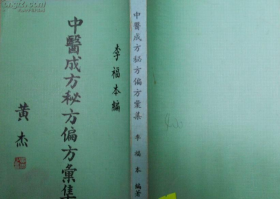 中醫成方秘方偏方彙集
李福本編
黃杰
中醫成方秘方偏方彙集 李福本 編著